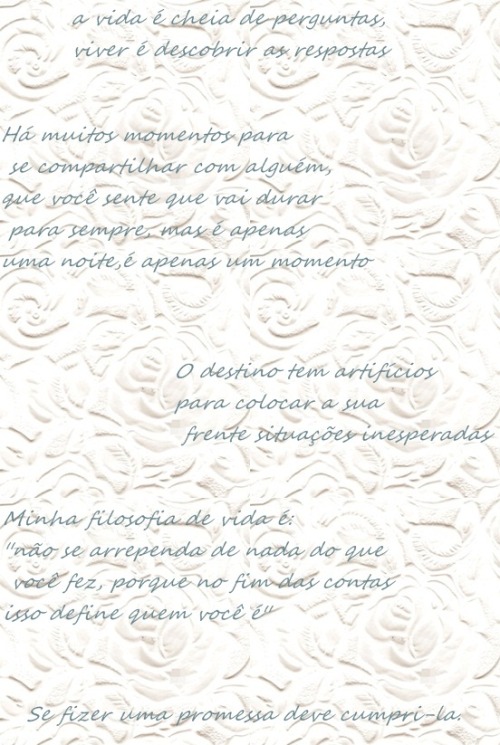 a vida é cheia de perguntas,
viver é descobrir as respostas
Há muitos momentos para
se compartilhar com alguém,
que você sente que vai durar
para sempre, mas é apenas
uma noite,é apenas um momento
O destino tem artifícios
para colocar a sua
frente situações inesperadas
Minha filosofia de vida é:
"não se arrependa de nada do que
você fez, porque no fim das contas
isso define quem você é"
Se fizer uma promessa deve cumpri-la.